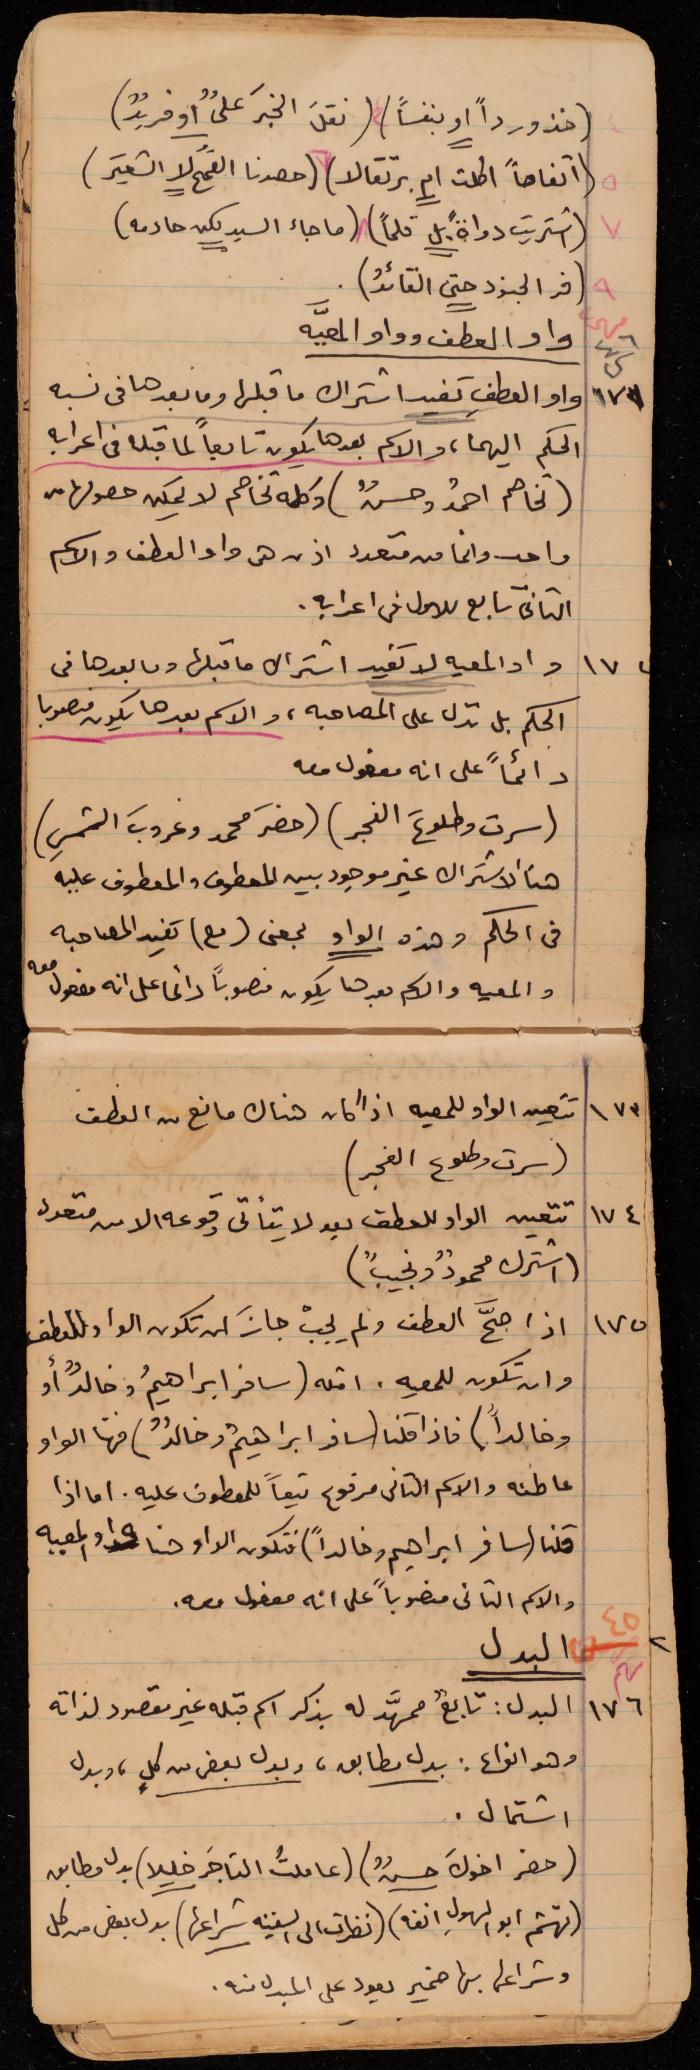 (خذ ورداً او بنفسجاً) (نقلَ الخبرَ علىٌّ أو فريدٌ)
٥ (أتفاحاً اكلت ام برتقالا) (حصدنا القمحَ لا الشعيرَ)
٧ (اشتريت دواةً بل قلماً) (ما جاء السيد لكن خادمه)
٩ (فر الجنود حتى القائدُ) .
واو العطف وواو المعيَّه
١٧١ واو العطفِ تفيد اشتراك ما قبلها وما بعدها فى نسبه
الحكم اليهما، والاسم بعدها يكون تابعاً لما قبله فى اعرابه
(تخاصم احمدُ وحسنٌ) وكلمة تخاصم لا يمكن حصولها من
واحد وانما من متعدد اذن هى واو العطف والاسم
الثانى تابع للاول فى اعرابه .
١٧٢ واو المعيه لا تفيد اشتراك ما قبلها وما بعدها فى
الحكم بل تدل على المصاحبه ، والاسم بعدها يكون منصوبا
دائماً على انه مفعول معه
(سرت وطلوعَ الفجر) (حضرَ محمد وغروبَ الشمسِ)
هنا الاشتراك غير موجود بين المعطوف والمعطوف عليه
فى الحكم وهذه الواو بمعنى (مع) تفيد المصاحبه
والمعيه والاسم بعدها يكون منصوباً دائما على انه مفعول معه
١٧٣ تتعين الواو للمعيه اذا كان هناك مانع من العطف
(سرت وطلوع الفجر)
١٧٤ تتعين الواو للعطف بعد لا يتأتى وقوعه الا من متعدد
(اشترك محمودٌ ونجيبٌ)
١٧٥ اذا صحَّ العطف ولم يجبْ جازَ ان تكون الواو للعطف
وان تكون للمعيه . امثله (سافر ابراهيمُ وخالدٌ أو
وخالداً) فاذا قلنا (سافر ابراهيمُ وخالدٌ) فهنا الواو
عاطفه والاسم الثانى مرفوع تبعاً للمعطوف عليه . اما اذا
قلنا (سافر ابراهيم وخالداً) فتكون الواو هنا واو المعيه
والاسم الثانى منصوباً على انه مفعول معه .
٤٥
البدل
١٧٦ البدل : تابعٌ ممهَّد له بذكر اسم قبله غير مقصود لذاته
وهو انواع : بدل مطابق ، وبدل بعض من كلٍ ، وبدل
اشتمال .
(حضر اخوكَ حسنٌ) (عاملتُ التاجرَ خليلا) بدل مطابق
(تهشم ابو الهولِ انفه) (نظرت الى السفينه شراعها) بدل بعض من كل
وشراعها بها ضمير يعود على المبدل منه .